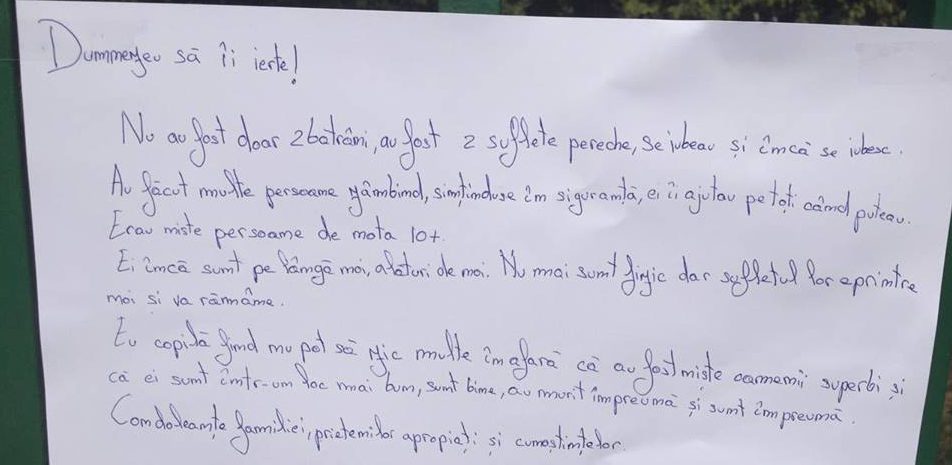 Dumnezeu să îi ierte!
Nu au fost doar 2 batrâni, au fost 2 suflete pereche, Se iubeau și încă se iubesc.
Au făcut multe persoane zâmbind, simținduse în siguranță, ei îi ajutau pe toți când puteau.
Erau niste persoane de nota 10+.
Ei încă sunt pe lângă noi, alaturi de noi. Nu mai sunt fizic dar sufletul lor eprintre
noi si va rămâne.
Eu copilă fiind nu pot să zic multe în afară că au fost niște oamenii superbi și
că ei sunt într-un loc mai bun, sunt bine, au murit împreună și sunt împreună.
Condoleanțe familiei, prietenilor apropiați și cunoștințelor.